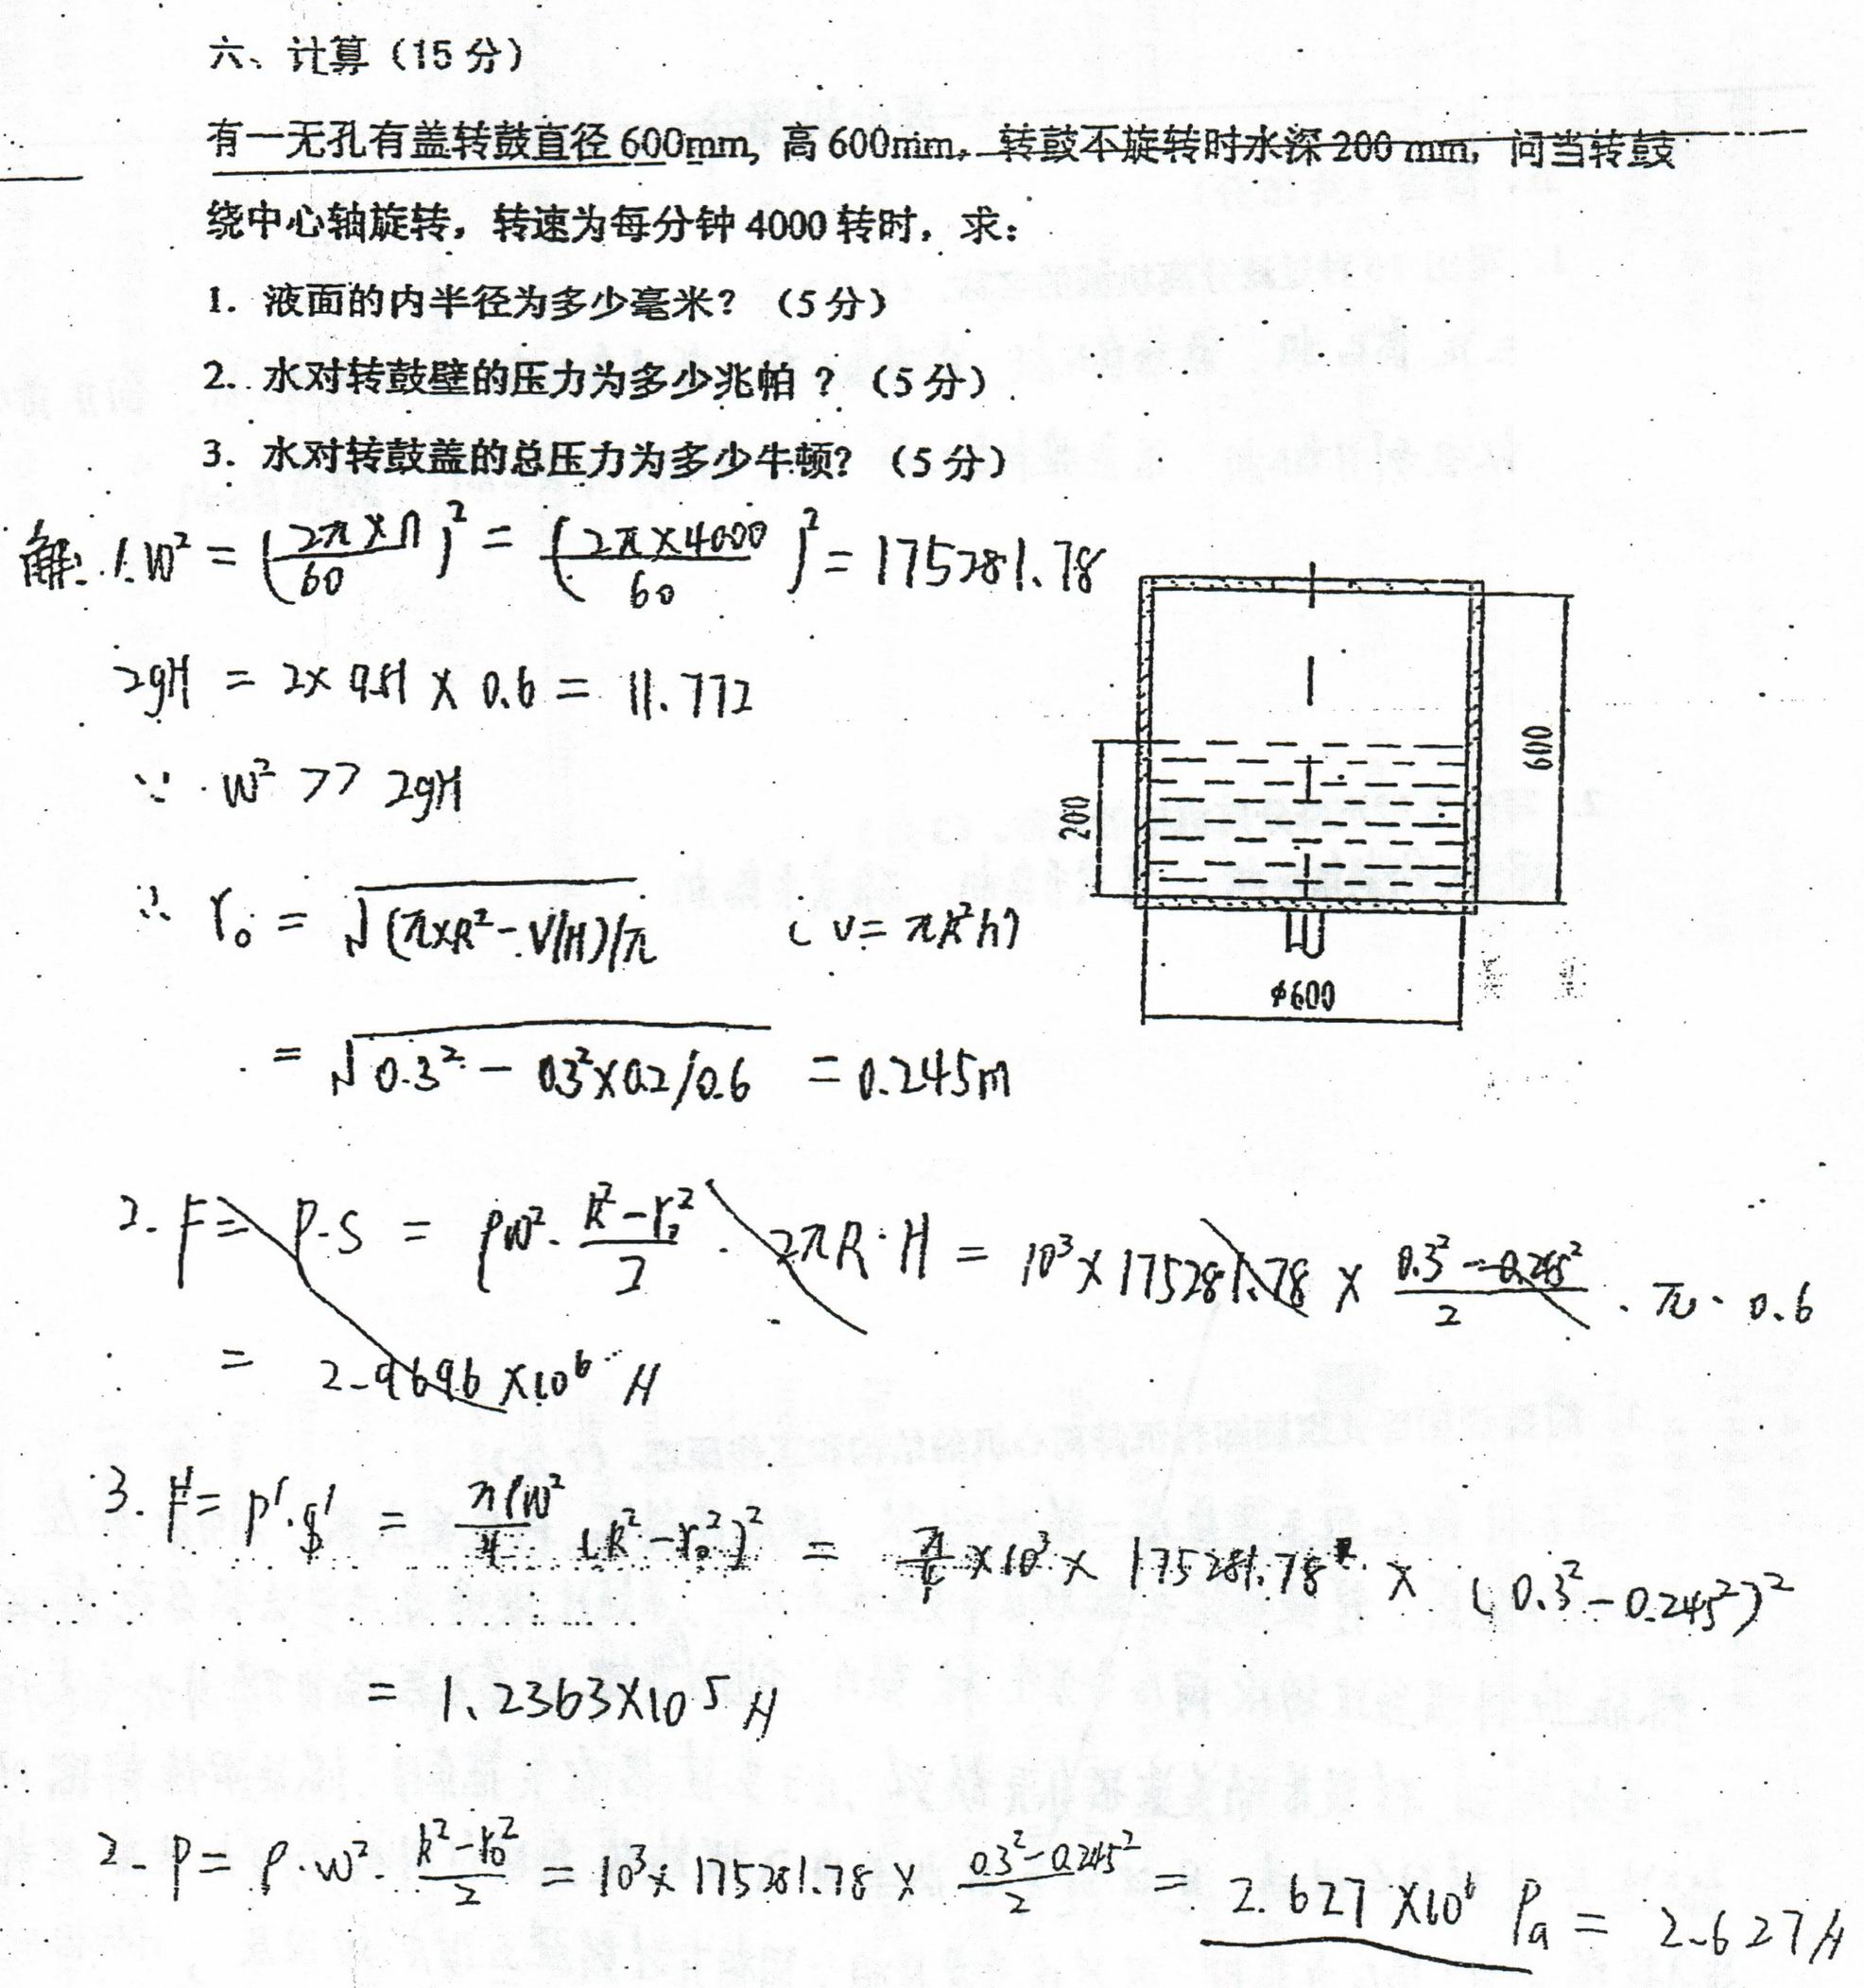 六、计算（15分）
有一无孔有盖转鼓直径600mm, 高600mm, 转鼓不旋转时水深200mm, 问当转鼓
绕中心轴旋转，转速为每分钟4000转时，求：
1. 液面的内半径为多少毫米？（5分）
2. 水对转鼓壁的压力为多少兆帕？（5分）
3. 水对转鼓盖的总压力为多少牛顿？（5分）
解: 1. W² = (2π×n/60)² = (2π×4000/60)² = 175281.78
2gH = 2×9.81×0.6 = 11.772
∵ W² >> 2gH
∴ r₀ = √(π×R²-V/H)/π (V=πR²h)
= √0.3²-0.3²×0.2/0.6 = 0.245m
600
200
φ600
2. F = P·S = ρW²·(R²-r₀²)/2·2πR·H = 10³×175281.78×(0.3²-0.245²)/2·π·0.6
= 2.9696×10⁶ N
3. F = P'·S' = πρW²/4 (R²-r₀²)² = π/4×10³×175281.78×(0.3²-0.245²)²
= 1.2363×10⁵ N
2. P = ρ·W²·(R²-r₀²)/2 = 10³×175281.78×(0.3²-0.245²)/2 = 2.627×10⁶ Pa = 2.627